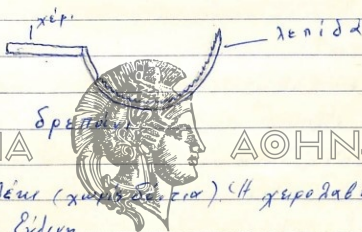 χέρι
λεπίδα
δρεπάνι
ΙΑ ΑΘΗΝ
(χωρίς δόντια). Η χειρολαβ
ξύλινη